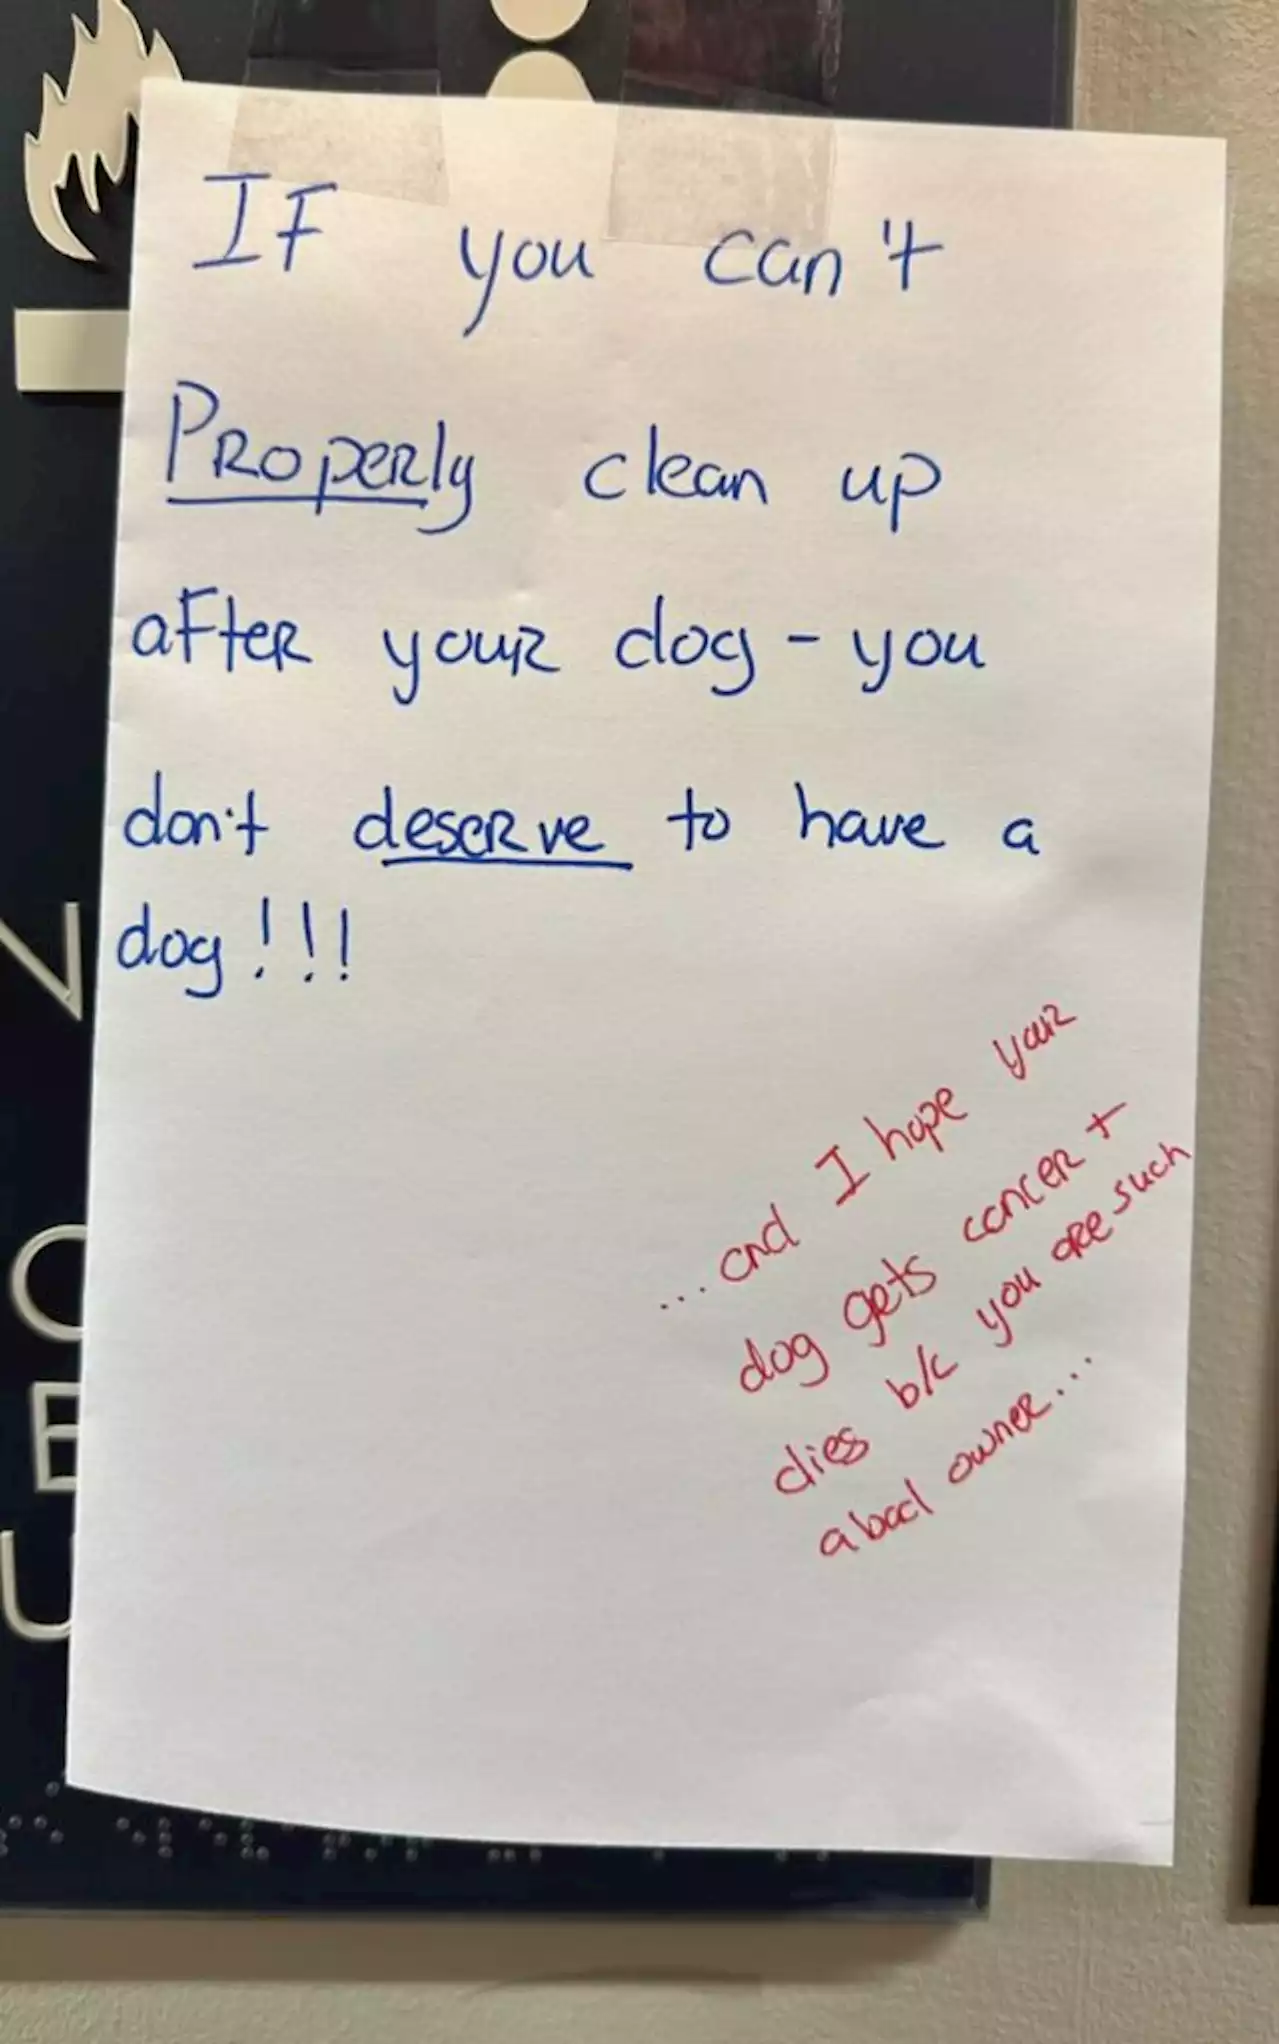 IF you can't
Properly clean up
after your dog - you
don't deserve to have a
dog!!!
...and I hope your
dog gets cancer +
dies b/c you are such
a bad owner...
V
U